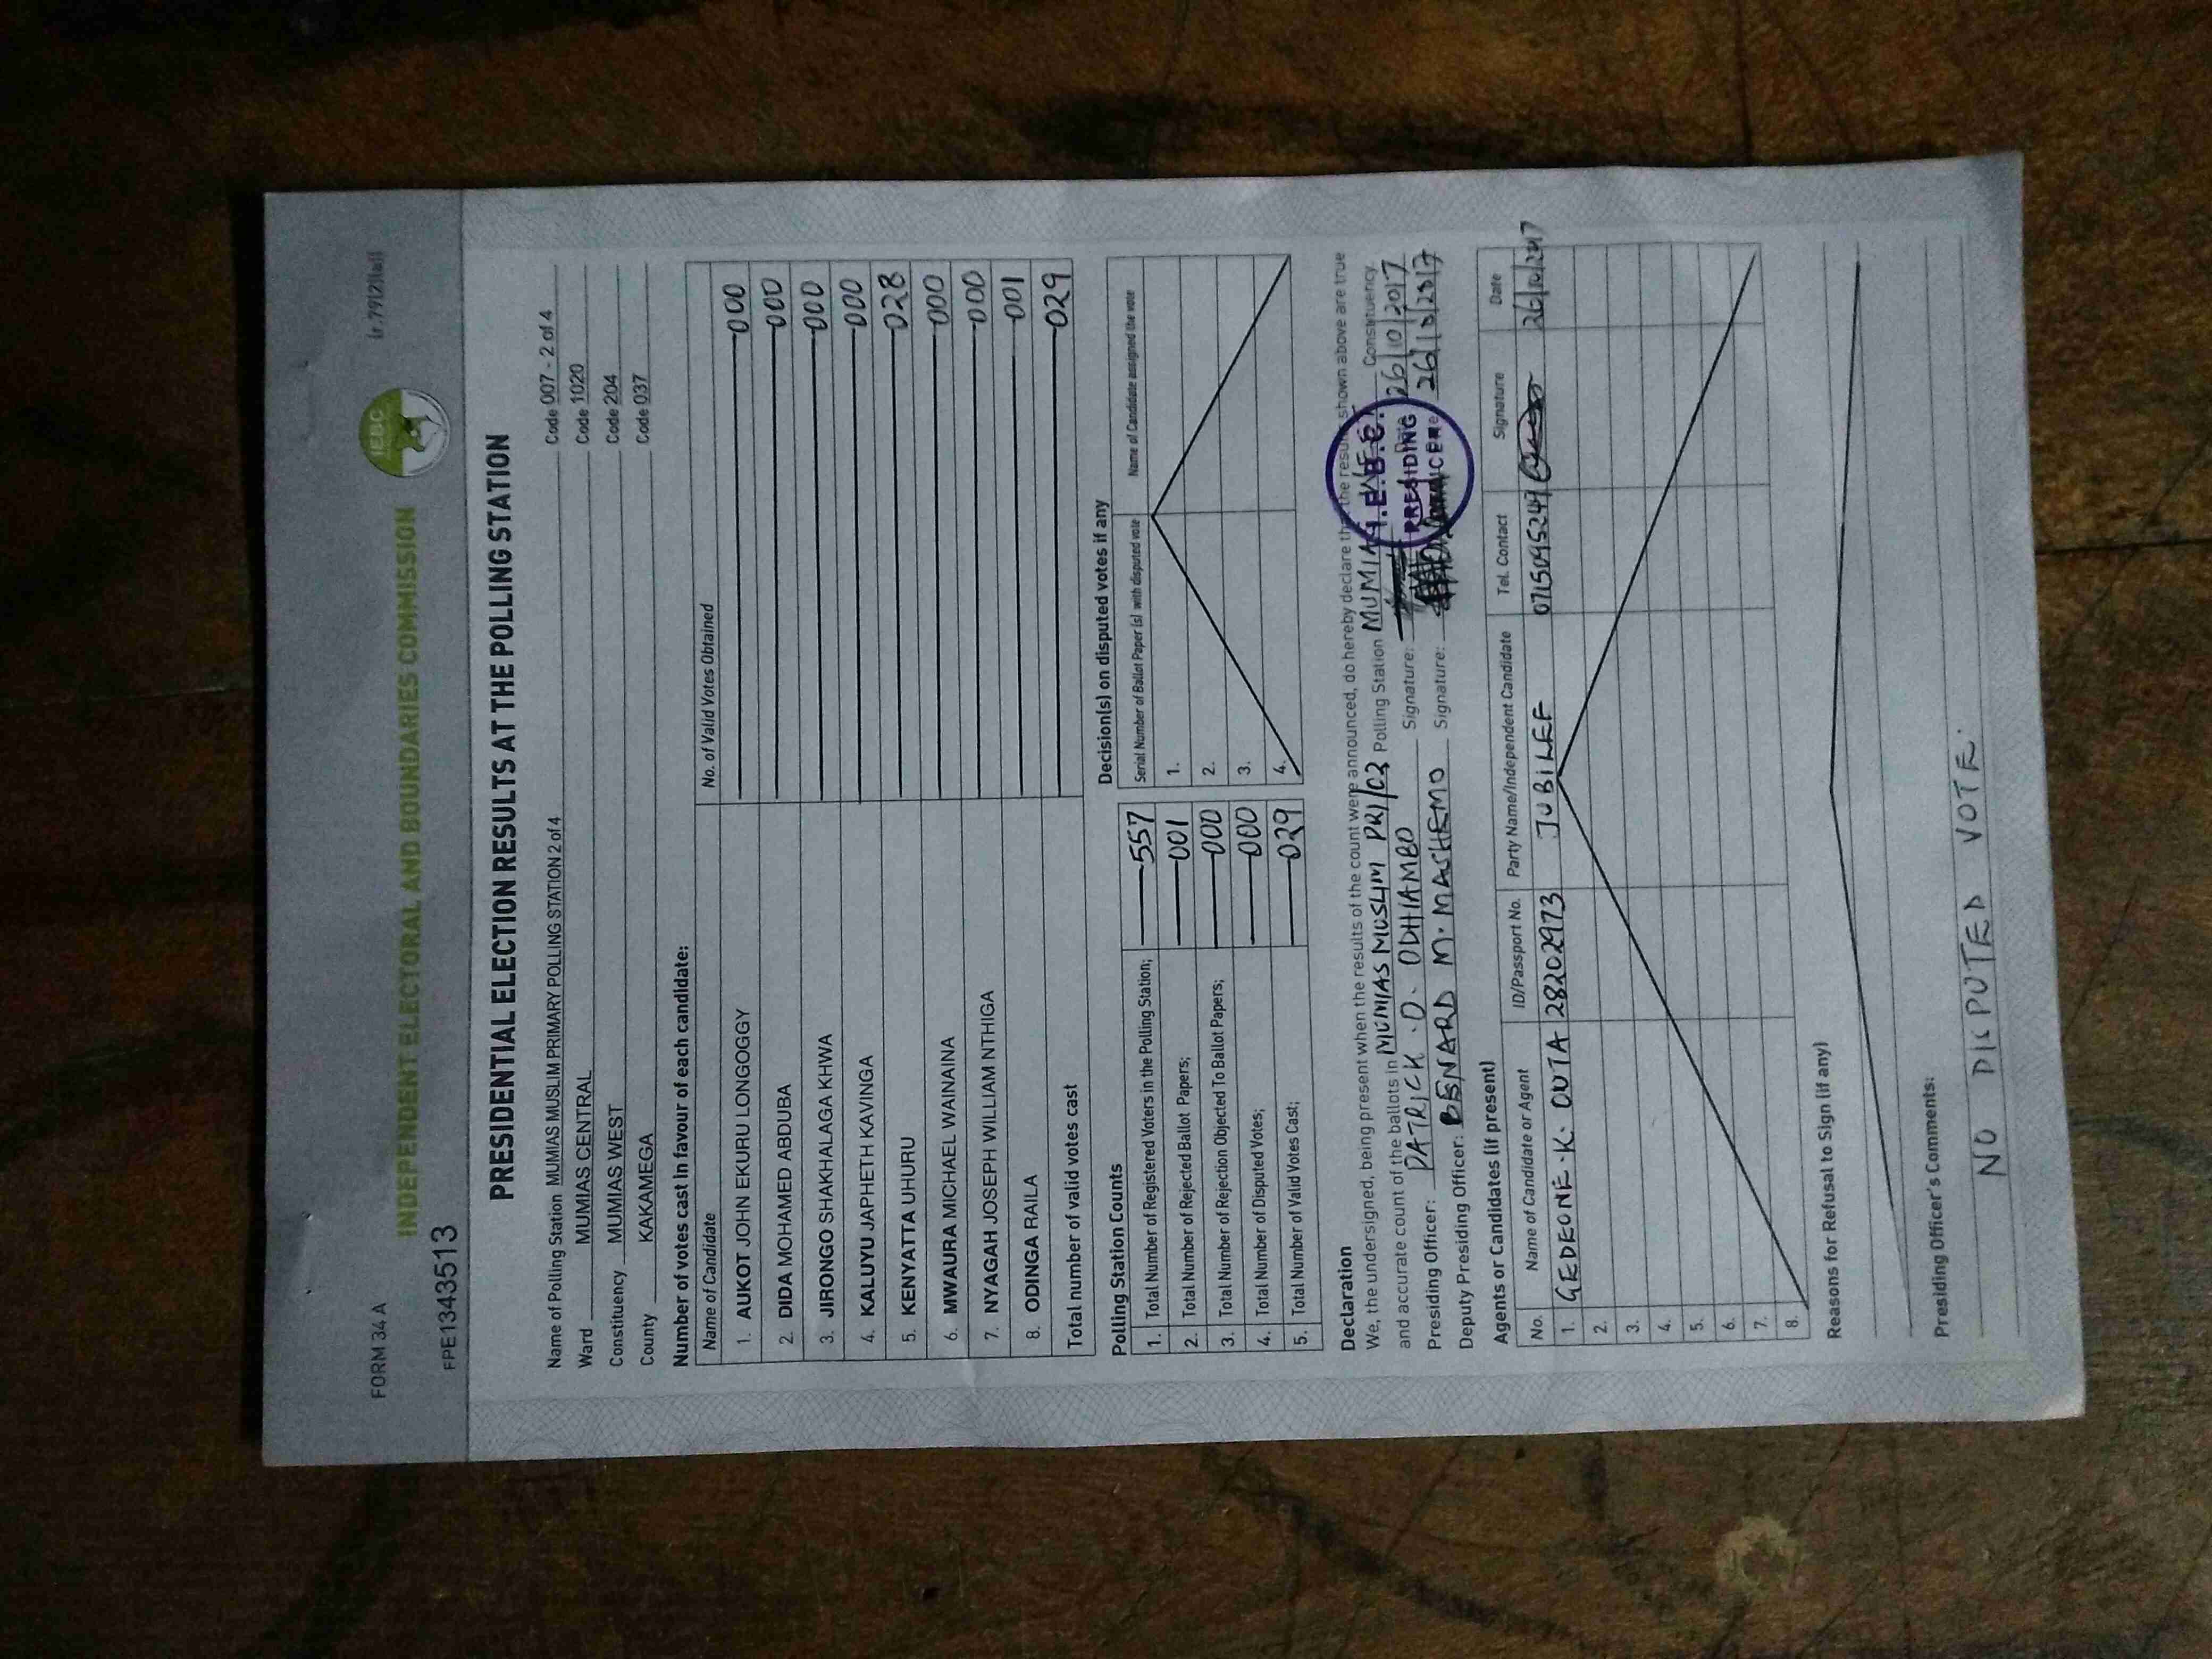 FORM 34 A
(r.79(2)(a))
INDEPENDENT ELECTORAL AND BOUNDARIES COMMISSION
IEBC
FPE1343513
PRESIDENTIAL ELECTION RESULTS AT THE POLLING STATION
Name of Polling Station MUMIAS MUSLIM PRIMARY POLLING STATION 2 of 4 Code 007 - 2 of 4
Ward MUMIAS CENTRAL Code 1020
Constituency MUMIAS WEST Code 204
County KAKAMEGA Code 037
Number of votes cast in favour of each candidate:
Name of Candidate No. of Valid Votes Obtained
1. AUKOT JOHN EKURU LONGOGGY 000
2. DIDA MOHAMED ABDUBA 000
3. JIRONGO SHAKHALAGA KHWA 000
4. KALUYU JAPHETH KAVINGA 000
5. KENYATTA UHURU 028
6. MWAURA MICHAEL WAINAINA 000
7. NYAGAH JOSEPH WILLIAM NTHIGA 000
8. ODINGA RAILA 001
Total number of valid votes cast 029
Polling Station Counts
1. Total Number of Registered Voters in the Polling Station; 557
2. Total Number of Rejected Ballot Papers; 001
3. Total Number of Rejection Objected To Ballot Papers; 000
4. Total Number of Disputed Votes; 000
5. Total Number of Valid Votes Cast; 029
Decision(s) on disputed votes if any
Serial Number of Ballot Paper (s) with disputed vote Name of Candidate assigned the vote
1.
2.
3.
4.
Declaration
We, the undersigned, being present when the results of the count were announced, do hereby declare that the results shown above are true
and accurate count of the ballots in MUMIAS MUSLIM PRI/02 Polling Station MUMIAS Constituency.
Presiding Officer: PATRICK .O. ODHIAMBO Signature: 26/10/2017
Deputy Presiding Officer: BENARD M. MACHEMO Signature: 26/10/2017
I.E.B.C.
PRESIDING
Agents or Candidates (if present)
No. Name of Candidate or Agent ID/Passport No. Party Name/Independent Candidate Tel. Contact Signature Date
1. GEDEONE .K. OUTA 28202973 JUBILEE 0715095249 26/10/2017
2.
3.
4.
5.
6.
7.
8.
Reasons for Refusal to Sign (if any)
Presiding Officer's Comments:
NO DISPUTED VOTE.